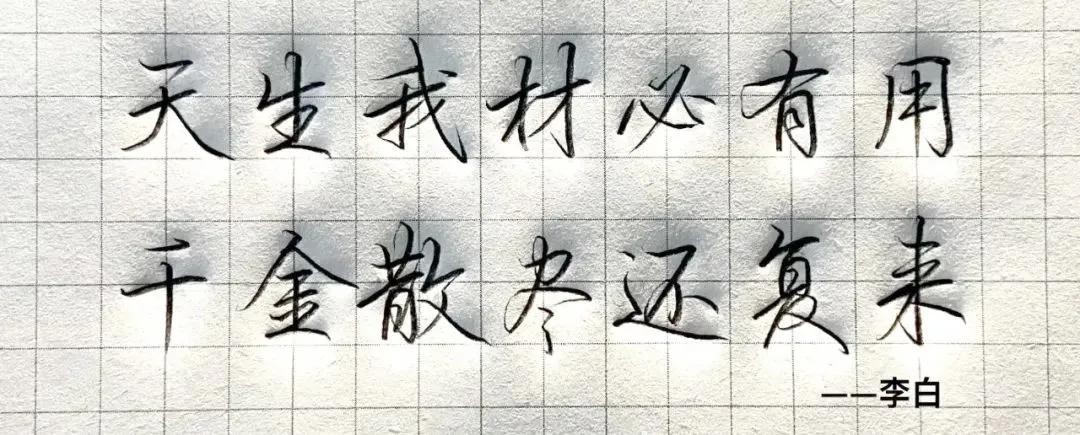 天生我材必有用
千金散尽还复来
——李白